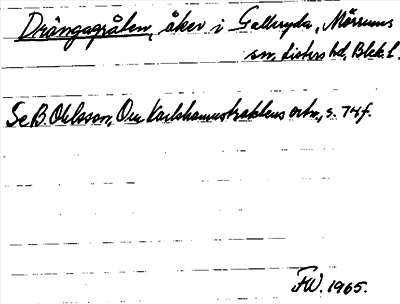 Drängagrålen, åker i Galleryda, Mörrums
sn, Listers hd, Blek. l.
Se B. Ohlsson, Om Karlshamnstraktens ortn., s. 74f.
FW. 1965.